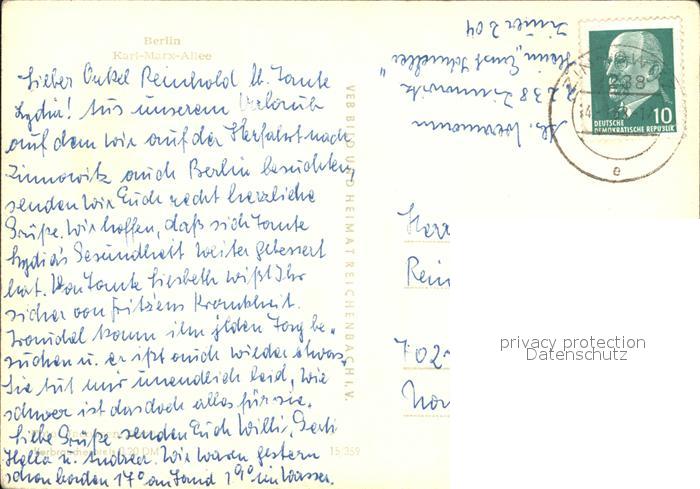 Berlin
Karl-Marx-Allee
Lieber Onkel Reinhold lb. Tante
Lydia! Aus unserem Urlaub
auf dem wir auf der Herfahrt nach
Zinnowitz auch Berlin besuchten,
senden wir Euch recht herzliche
Grüße. Wir hoffen, daß sich Tante
Lydia's Gesundheit weiter gebessert
hat. Von Tante Liesbeth wißt Ihr
sicher von Fritzens Krankheit.
Traudel kann ihn jeden Tag be-
suchen u. er ißt auch wieder etwas.
Sie tut mir unendlich leid, wie
schwer ist das doch alles für sie.
Liebe Grüße senden Euch Willi, Gerti
Hella u. Andrea. Wir waren gestern
schon baden 17° an Land 19° im Wasser.
15/359
VEB BILD UND HEIMAT REICHENBACH i. V.
Abs.
2238 Zinnowitz
Heim „Ernst
Zimmer 204
10
DEUTSCHE
DEMOKRATISCHE REPUBLIK
238
e
Herr
Rein
702
privacy protection
Datenschutz